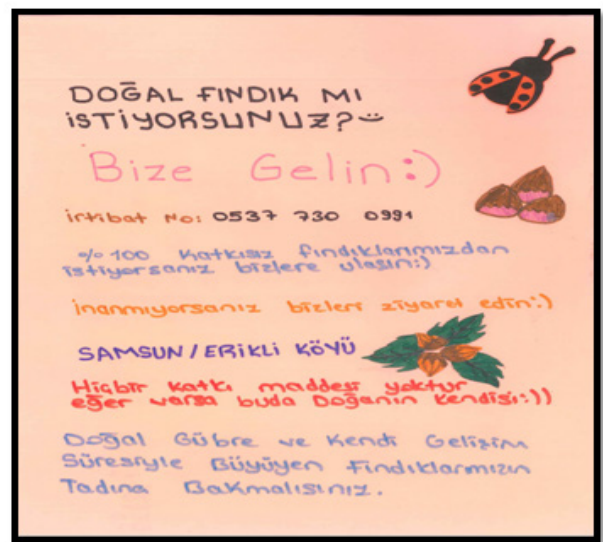 DOĞAL FINDIK MI
İSTİYORSUNUZ?
Bize Gelin:)
irtibat No: 0537 730 0991
%100 Katkısız fındıklarımızdan
istiyorsanız bizlere ulaşın:)
inanmıyorsanız bizleri ziyaret edin:)
SAMSUN/ERİKLİ KÖYÜ
Hiçbir Katkı maddesi yoktur
eğer varsa buda Doğanın Kendisi:))
Doğal Gübre ve Kendi Gelişim
Süresiyle Büyüyen Fındıklarımızın
Tadına Bakmalısınız.